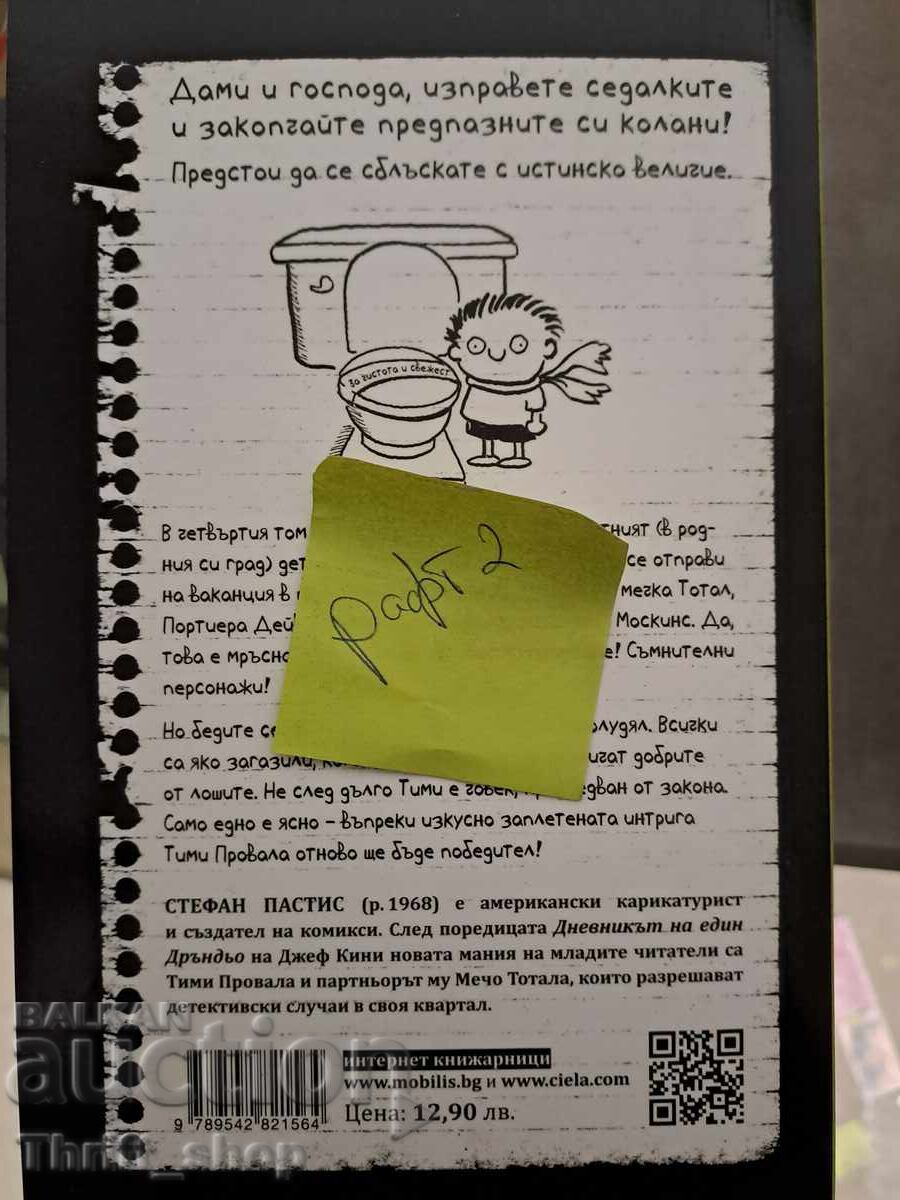 Дами и господа, изправете седалките
и закопчайте предпазните си колани!
Предстои да се сблъскате с истинско величие.
За чистота и свежест
В четвъртия том тният (в род-
ния си град) се отправи
на ваканция в мечка Тотал,
Портиера Москинс. Да,
това е мръсно Съмнителни
персонажи!
Но бедите Всички
са яко загазили, добрите
от лошите. Не след дълго Тими е от закона.
Само едно е ясно – въпреки изкусно заплетената интрига
Тими Провала отново ще бъде победител!
рафт 2
СТЕФАН ПАСТИС (р. 1968) е американски карикатурист
и създател на комикси. След поредицата Дневникът на един
Дръндьо на Джеф Кини новата мания на младите читатели са
Тими Провала и партньорът му Мечо Тотала, които разрешават
детективски случаи в своя квартал.
BALKAN
auction
интернет книжарници
www.mobilis.bg и www.ciela.com
Цена: 12,90 лв.
9 789542 821564
Thrift_shop